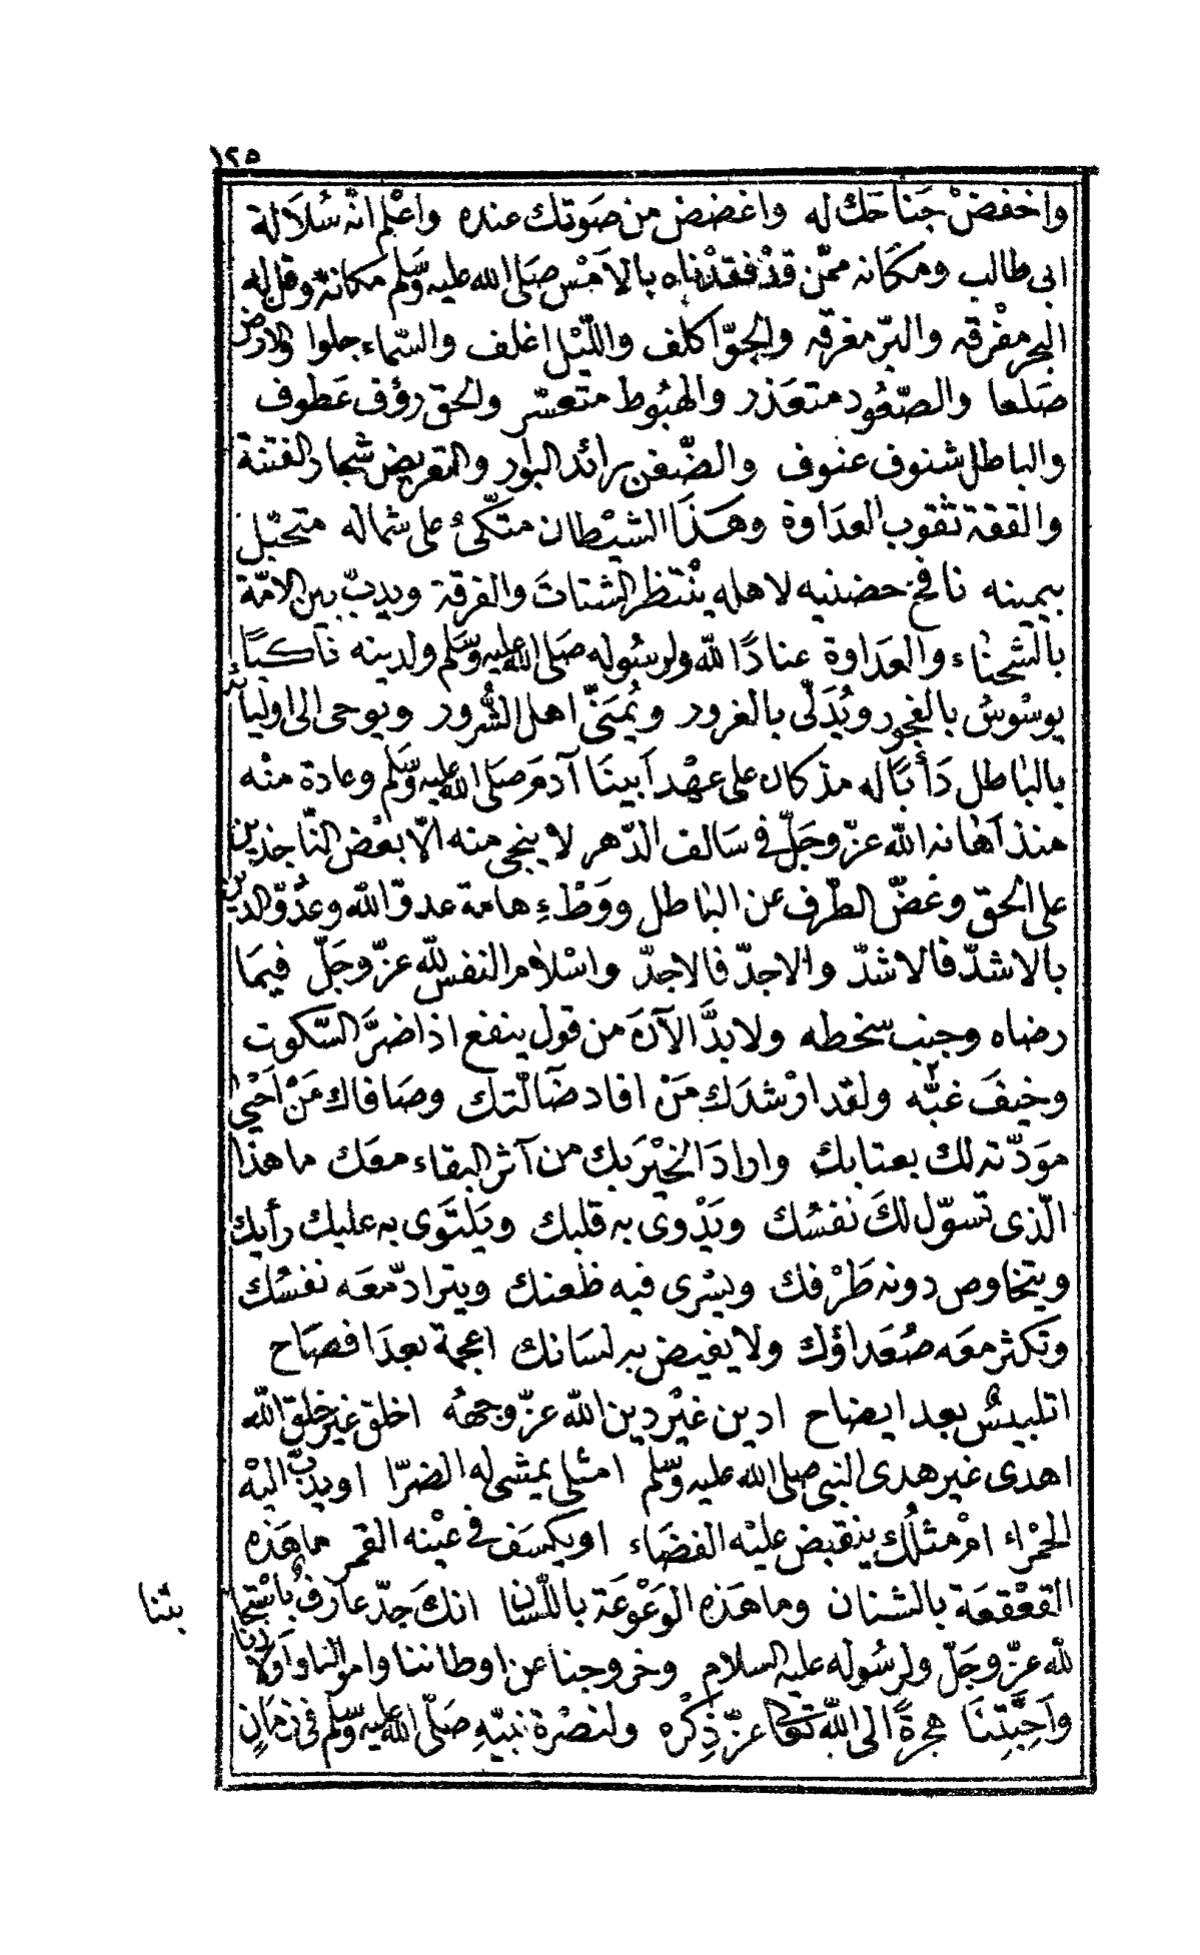 ١٢٥
واخفضْ جَناحَك له واغضض من صَوتك عنده واعْلم انّه سُلَالة
ابى طالب ومكَانه ممّن قدْ فقدْناه بالاَمْس صَلى الله عليه وسَّلم مكانة وقل له
البحر مفْرقه والبرّ مفرقه والجوّ اكلف واللّيْل اغلف والسّماء جلوا والارض
صَلعا والصّعُود متعَذر والهبُوط متعسّر والحق رؤف عَطوف
والباطل شنوف عنوف والضّغن رائد البوار والتعريض شجار الفتنة
والقفة ثقوب العدَاوة وهَذَا الشيْطان متكّئُ على شماله متحبّل
بيمينه نافخ حضنيه لاهله ينْتظر الشتاتَ والفرقة ويدبّ بين الامّة
بالشحناء والعدَاوة عنادًا لله ولرسُوله صَلى الله عليه وسَّلم ولدينه ناكبًا
يوسْوسُ بالفجور ويُدَلّى بالغرور ويُمَنّى اهل الشُّرور ويوحى الى اوليائه
بالباطل دَأبًا له مذ كان على عهْد اَبينَا آدمَ صَلى الله عليه وسَّلم وعادة منْه
منذ اَهانه الله عزّ وجَلّ فى سَالف الدّهر لا ينجى منه الّا بعْض النّاجذين
على الحقّ وغضّ الطّرف عن الباطل ووَطْءِ هامة عدوّ الله وعدُوّ الدين
بالاشدّ فالاشدّ والاجدّ فالاجدّ واسْلام النفس لله عزّ وجَلّ فيمَا
رضاه وجنب سخطه ولابدَّ الآنَ من قول ينفع اذا ضرَّ السّكوت
وخيفَ غبّه ولقد ارْشدَك مَنْ افاد ضَآلّتك وصَافاك مَنْ اَحْيى
مَوَدّته لك بعتابك وارادَ الخيْرَ بك من آثر البقاء معَك ما هذا
الّذى تسَوّل لكَ نفسُك ويَدْوى به قلبك ويَلتَوى به عليك رأيك
ويتخاوص دونه طَرْفك ويسْرى فيه ظعنك ويترادّ معَه نفسُك
وتكثر معَه صُعَداؤك ولا يفيض به لسَانك اعجمة بعدَ افصَاح
اتلبيسٌ بعد ايضاح ادين غيْر دين الله عزّ وجهُه اخلق غير خلق الله
اهدى غير هدى النبى صلى الله عليه وسّلم امثلى يمشى له الضرّا اويدبّ اليْه
الخمْراء امْ مثلُك ينقبض عليْه الفضَاء او يكسَف فى عيْنه القمر ما هَذه
القعْقعَة بالشنان وما هَذه الوَعْوعَة باللّسَان انكَ جدّ عارفٌ باسْتجابتنا
لله عزّ وجَلّ ولرسُوله عليه السلام وخروجنا عن اوطاننا وامْوالنا واَولادنا
واَحِبَّتِنَا هجرةً الى الله تعَالى عزّ ذِكْره ولنصْرة نبيّهِ صَلّى الله عليه وسّلم فى زمَانٍ
بتنا